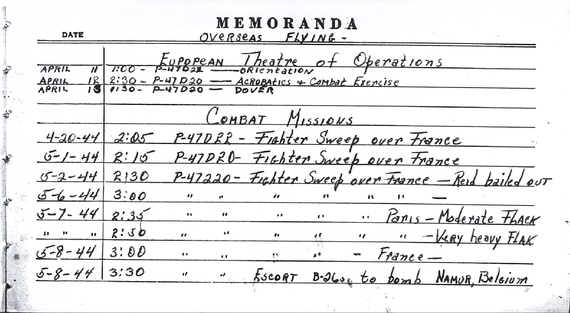 MEMORANDA
DATE OVERSEAS FLYING -
European Theatre of Operations
APRIL 11 1:00 - P-47D22 — ORIENTATION
APRIL 12 2:30 - P-47D20 — ACROBATICS & COMBAT EXERCISE
APRIL 13 1:30 - P-47D20 — DOVER
COMBAT MISSIONS
4-20-44 2:05 P-47D22 - Fighter Sweep over France
5-1-44 2:15 P-47D20 - Fighter Sweep over France
5-2-44 2:30 P-47220 - Fighter Sweep over France — Reid bailed out
5-6-44 3:00 " " " " " " —
5-7-44 2:35 " " " " " Paris - Moderate Flack
" " " 2:50 " " " - Very heavy Flak
5-8-44 3:00 " " " " - France —
5-8-44 3:30 " " Escort B-26s, to bomb Namur, Belgium